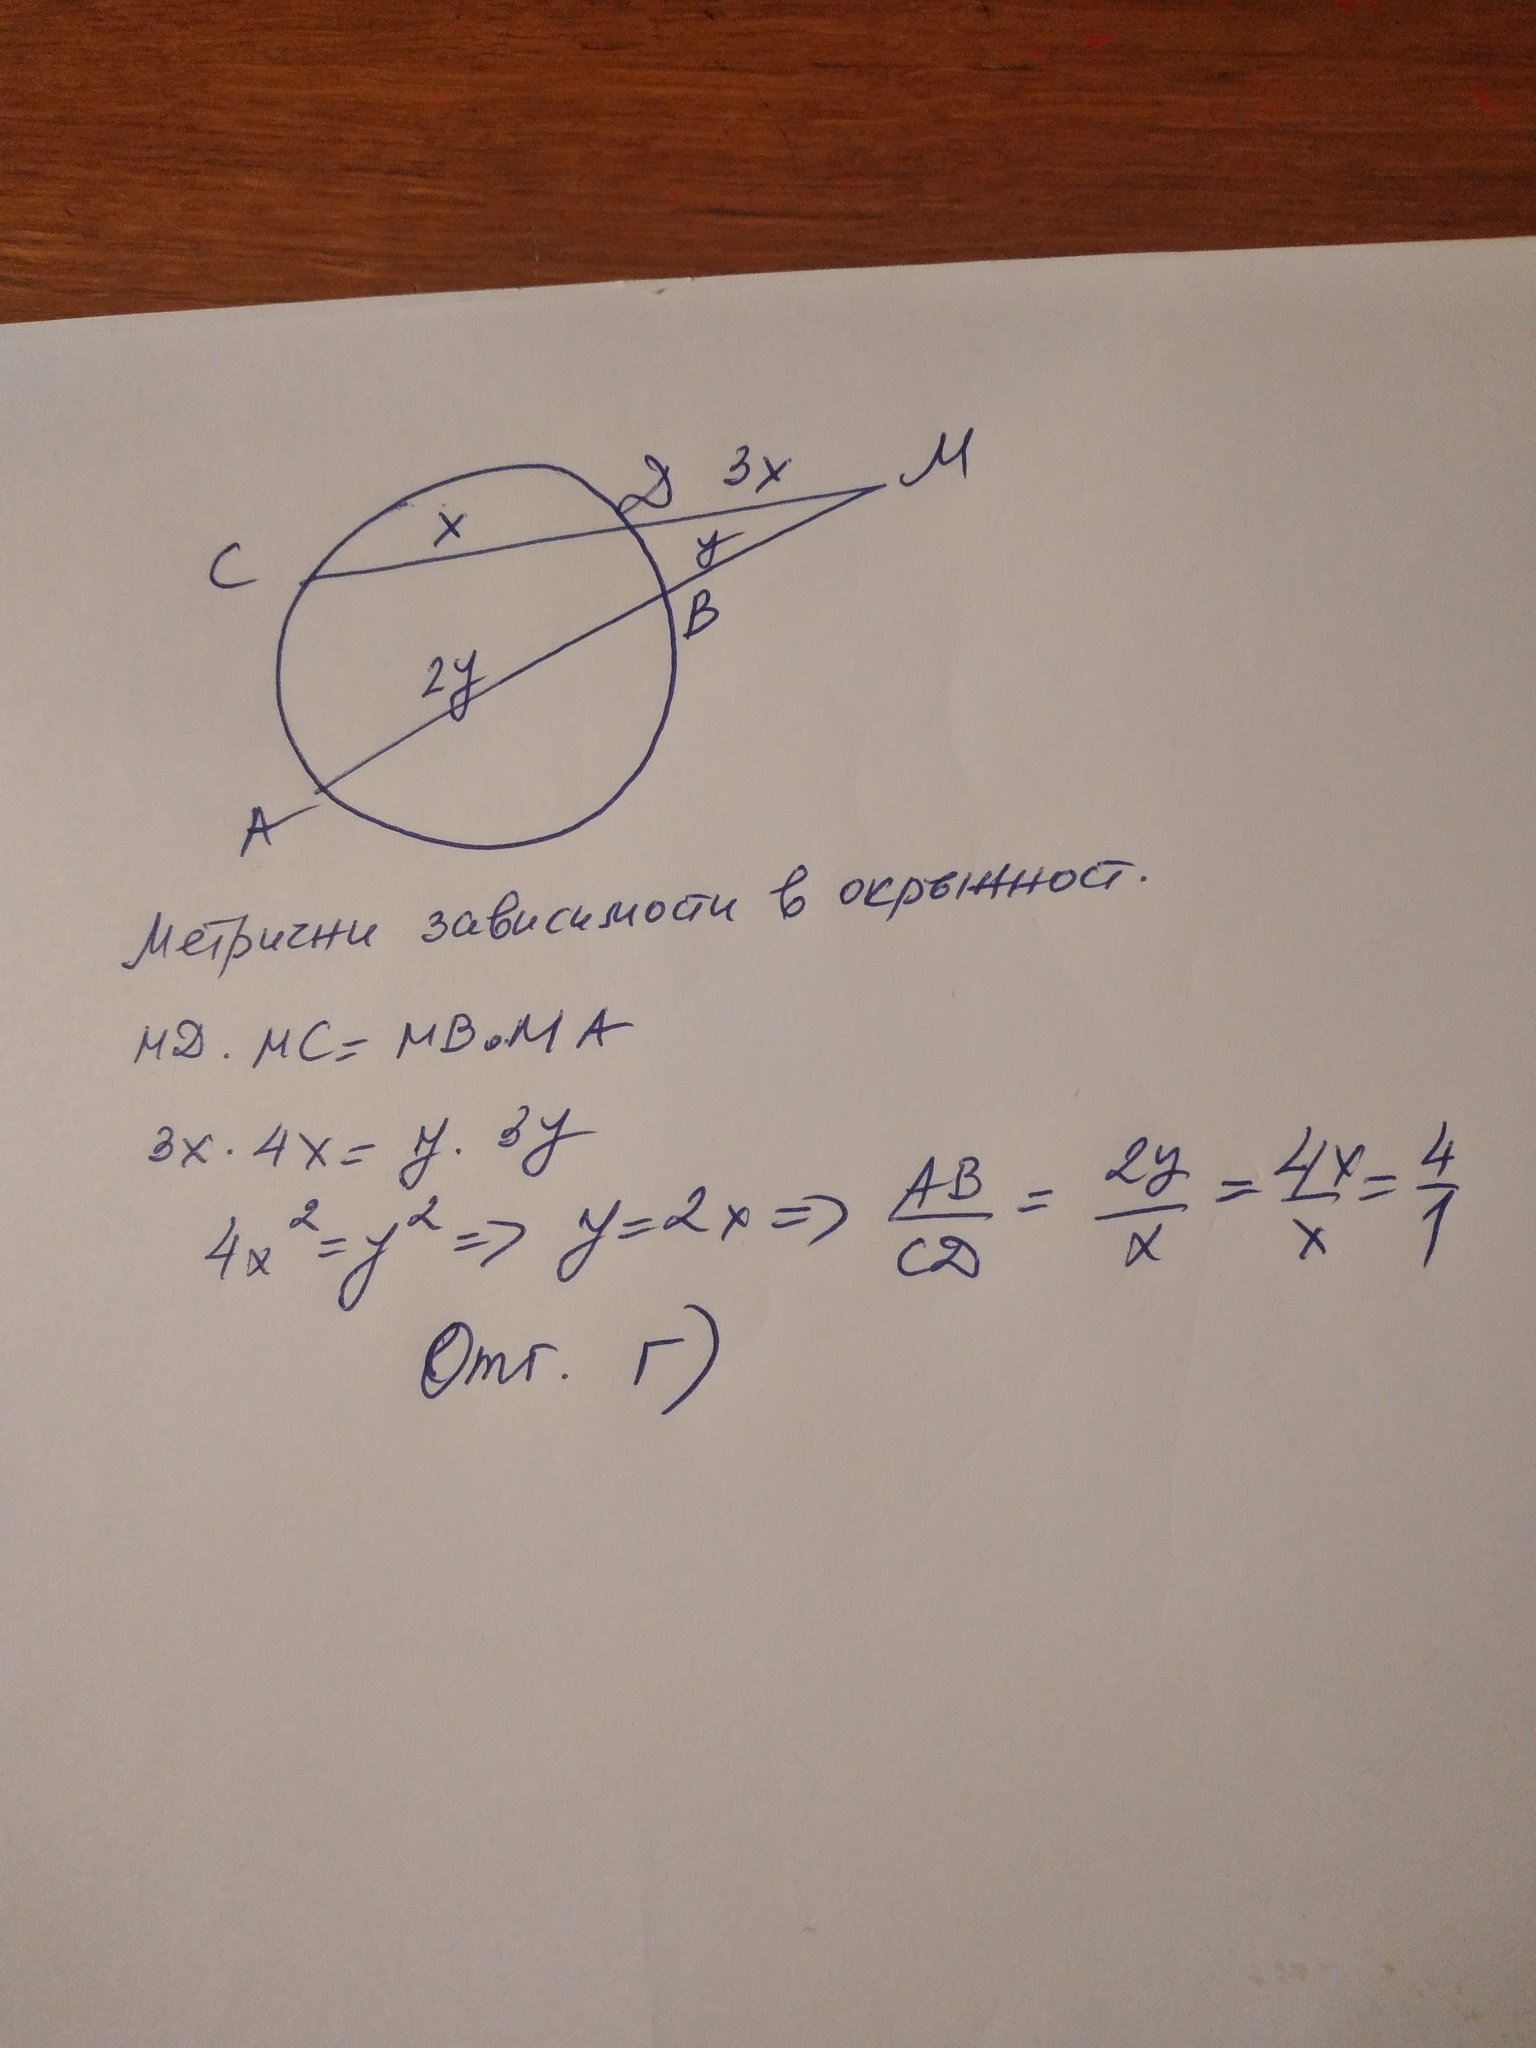 D 3x M
C x y
B
2y
A
Метрични зависимости в окръжност.
MD . MC = MB . MA
3x . 4x = y . 3y
4x² = y² => y = 2x => AB/CD = 2y/x = 4x/x = 4/1
Отг. Г)